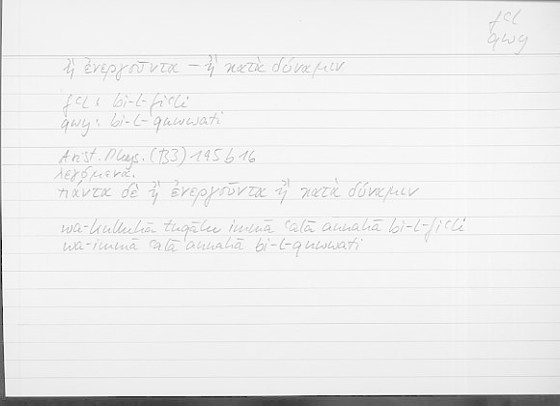 fʿl
qwy
ἢ ἐνεργοῦντα – ἢ κατὰ δύναμιν
fʿl : bi-l-fiʿli
qwy : bi-l-quwwati
Arist. Phys. (B3) 195b16
λεγόμενα.
πάντα δὲ ἢ ἐνεργοῦντα ἢ κατὰ δύναμιν
wa-kulluhā tuqālu immā ʿalā annahā bi-l-fiʿli
wa-immā ʿalā annahā bi-l-quwwati